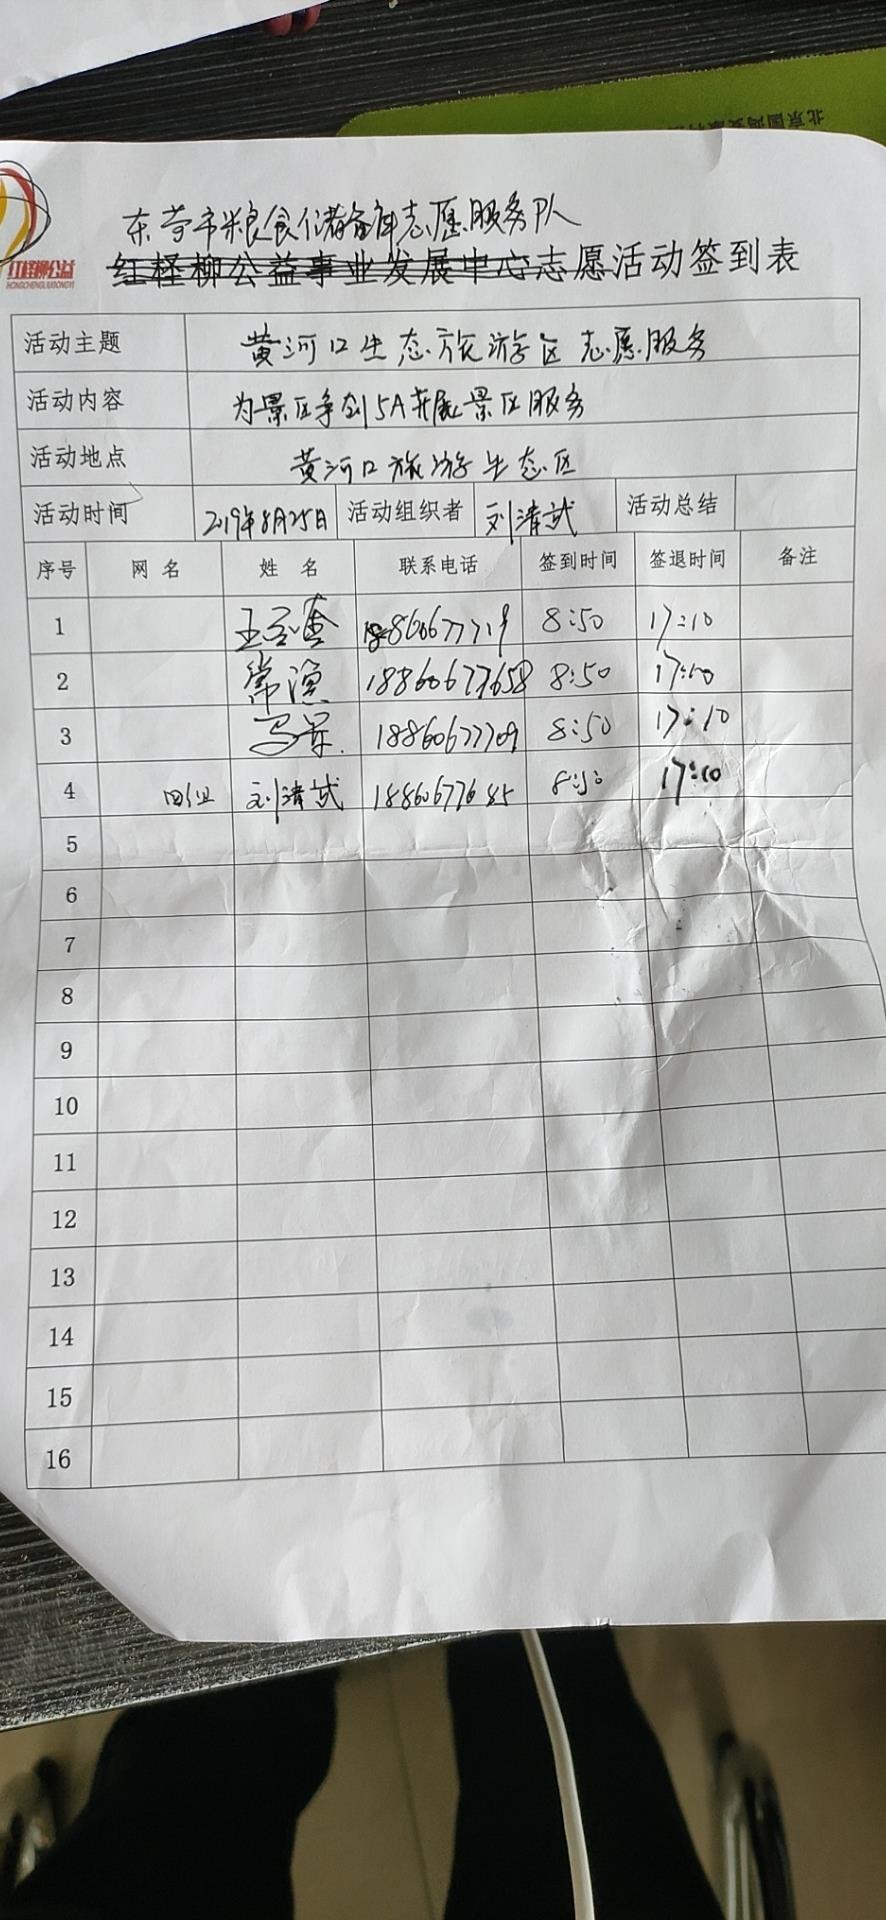 红柽柳公益
HONGCHENGLIUGONGYI
东营市粮食储备库志愿服务队
红柽柳公益事业发展中心志愿活动签到表
活动主题 黄河口生态旅游区志愿服务
活动内容 为景区争创5A开展景区服务
活动地点 黄河口旅游生态区
活动时间 2019年8月25日 活动组织者 刘清试 活动总结
序号 网名 姓名 联系电话 签到时间 签退时间 备注
1 8:50 17:10
2 常渔 18860677658 8:50 17:10
3 18860677709 8:50 17:10
4 刘清试 18860677685 8:50 17:10
5
6
7
8
9
10
11
12
13
14
15
16